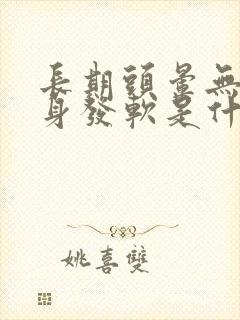 長期頭暈無
身發軟是什
姚喜雙